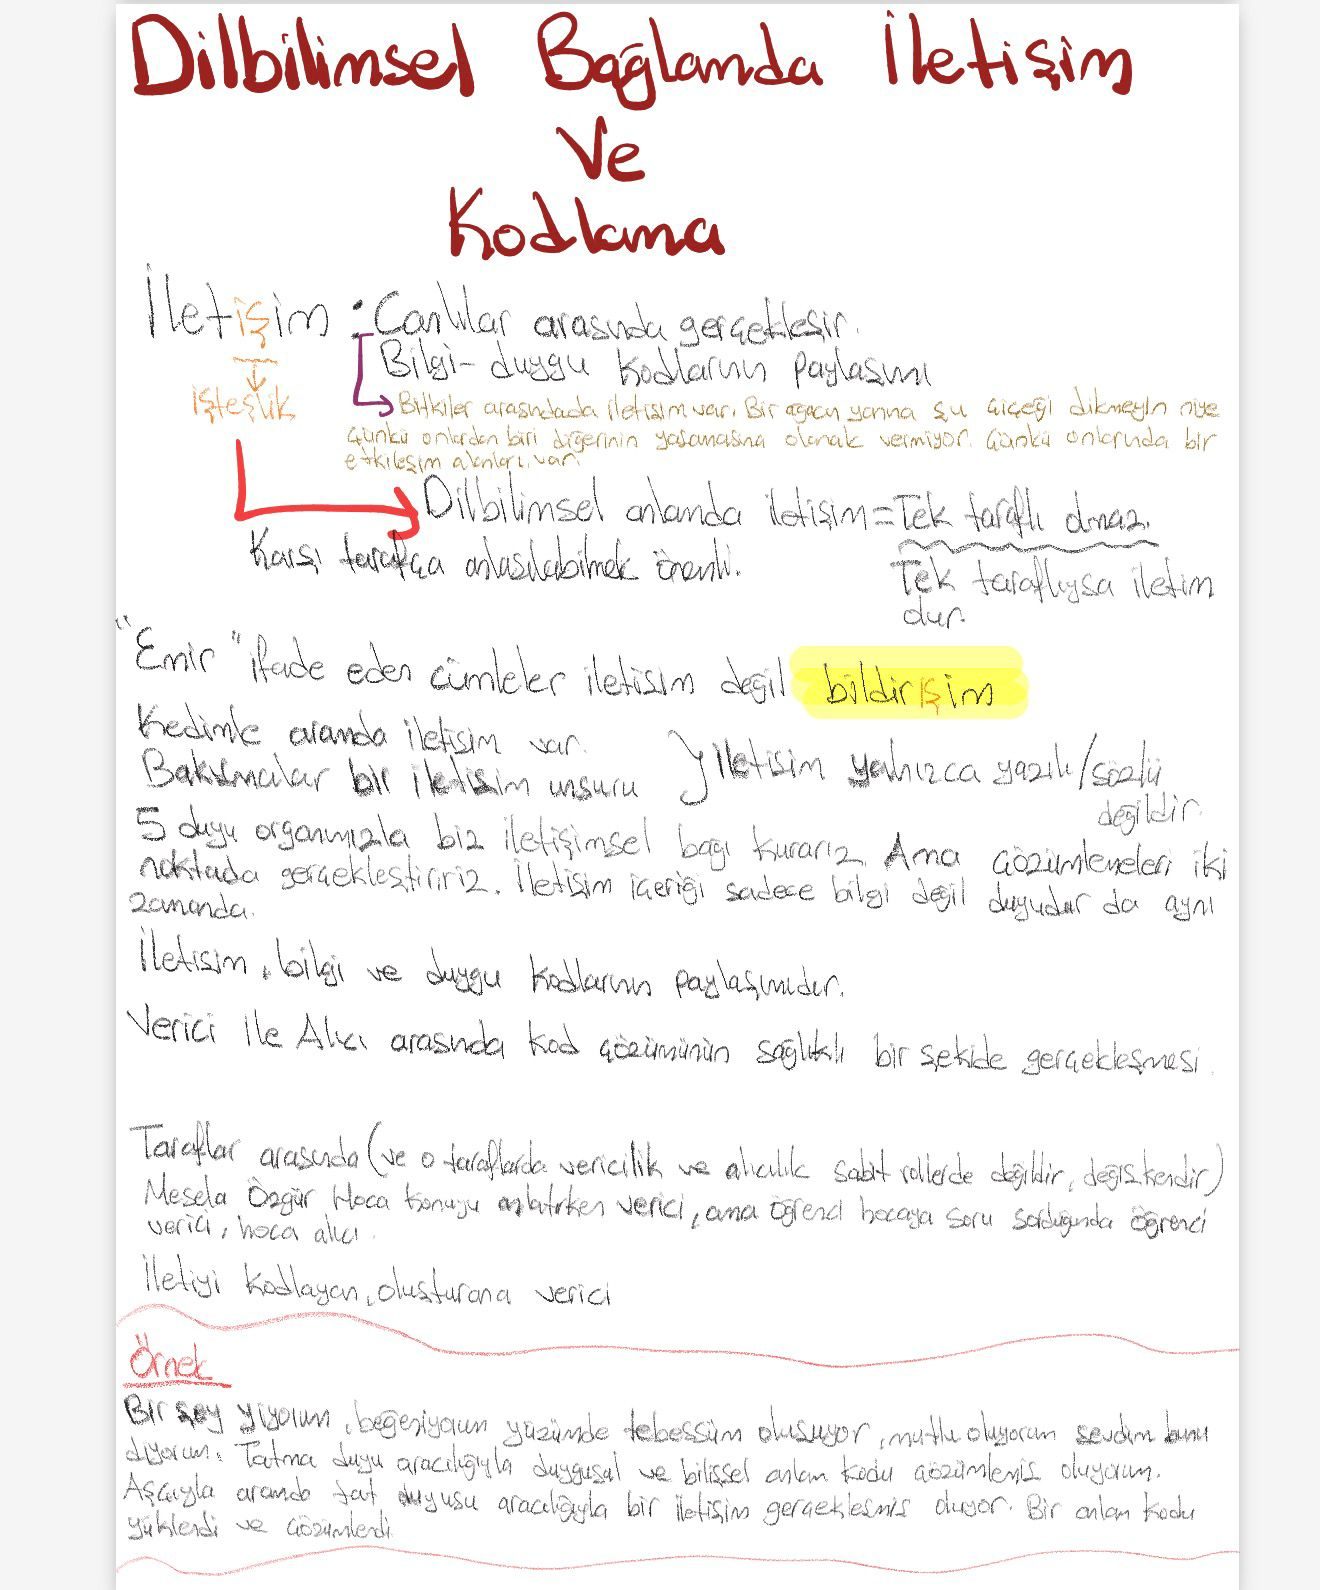 Dilbilimsel Bağlamda İletişim
Ve
Kodlama
İletişim : Canlılar arasında gerçekleşir.
Bilgi-duygu kodlarının paylaşımı
işteşlik
Bitkiler arasındada iletişim var. Bir ağacın yanına şu çiçeği dikmeyin niye
Çünkü onlardan biri diğerinin yaşamasına olanak vermiyor. Çünkü onlarında bir
etkileşim alanları var.
Dilbilimsel anlamda iletişim = Tek taraflı olmaz.
Karşı tarafça anlaşılabilmek önemli.
Tek taraflıysa iletim
dur.
"Emir" ifade eden cümleler iletişim değil bildirişim
Kedimle aramda iletişim var.
Bakışmalar bir iletişim unsuru
} İletişim yalnızca yazılı/sözlü
değildir.
5 duyu organımızla biz iletişimsel bağı kurarız. Ama çözümlemeleri iki
noktada gerçekleştiririz. İletişim içeriği sadece bilgi değil duyudur da aynı
zamanda.
İletişim, bilgi ve duygu kodlarının paylaşımıdır.
Verici ile Alıcı arasında kod çözümünün sağlıklı bir şekide gerçekleşmesi.
Taraflar arasında (ve o taraflarda vericilik ve alıcılık sabit rollerde değildir, değişkendir)
Mesela Özgür Hoca konuyu anlatırken verici, ama öğrenci hocaya soru sorduğunda öğrenci
verici, hoca alıcı.
İletiyi kodlayan, oluşturana verici
Örnek
Bir şey yiyorum, beğeniyorum yüzümde tebessüm oluşuyor, mutlu oluyorum sevdim bunu
diyorum. Tatma duyu aracılığıyla duygusal ve bilişsel anlam kodu çözümlemiş oluyorum.
Aşçıyla aramda tat duyusu aracılığıyla bir iletişim gerçekleşmiş oluyor. Bir anlam kodu
yüklendi ve çözümlendi.